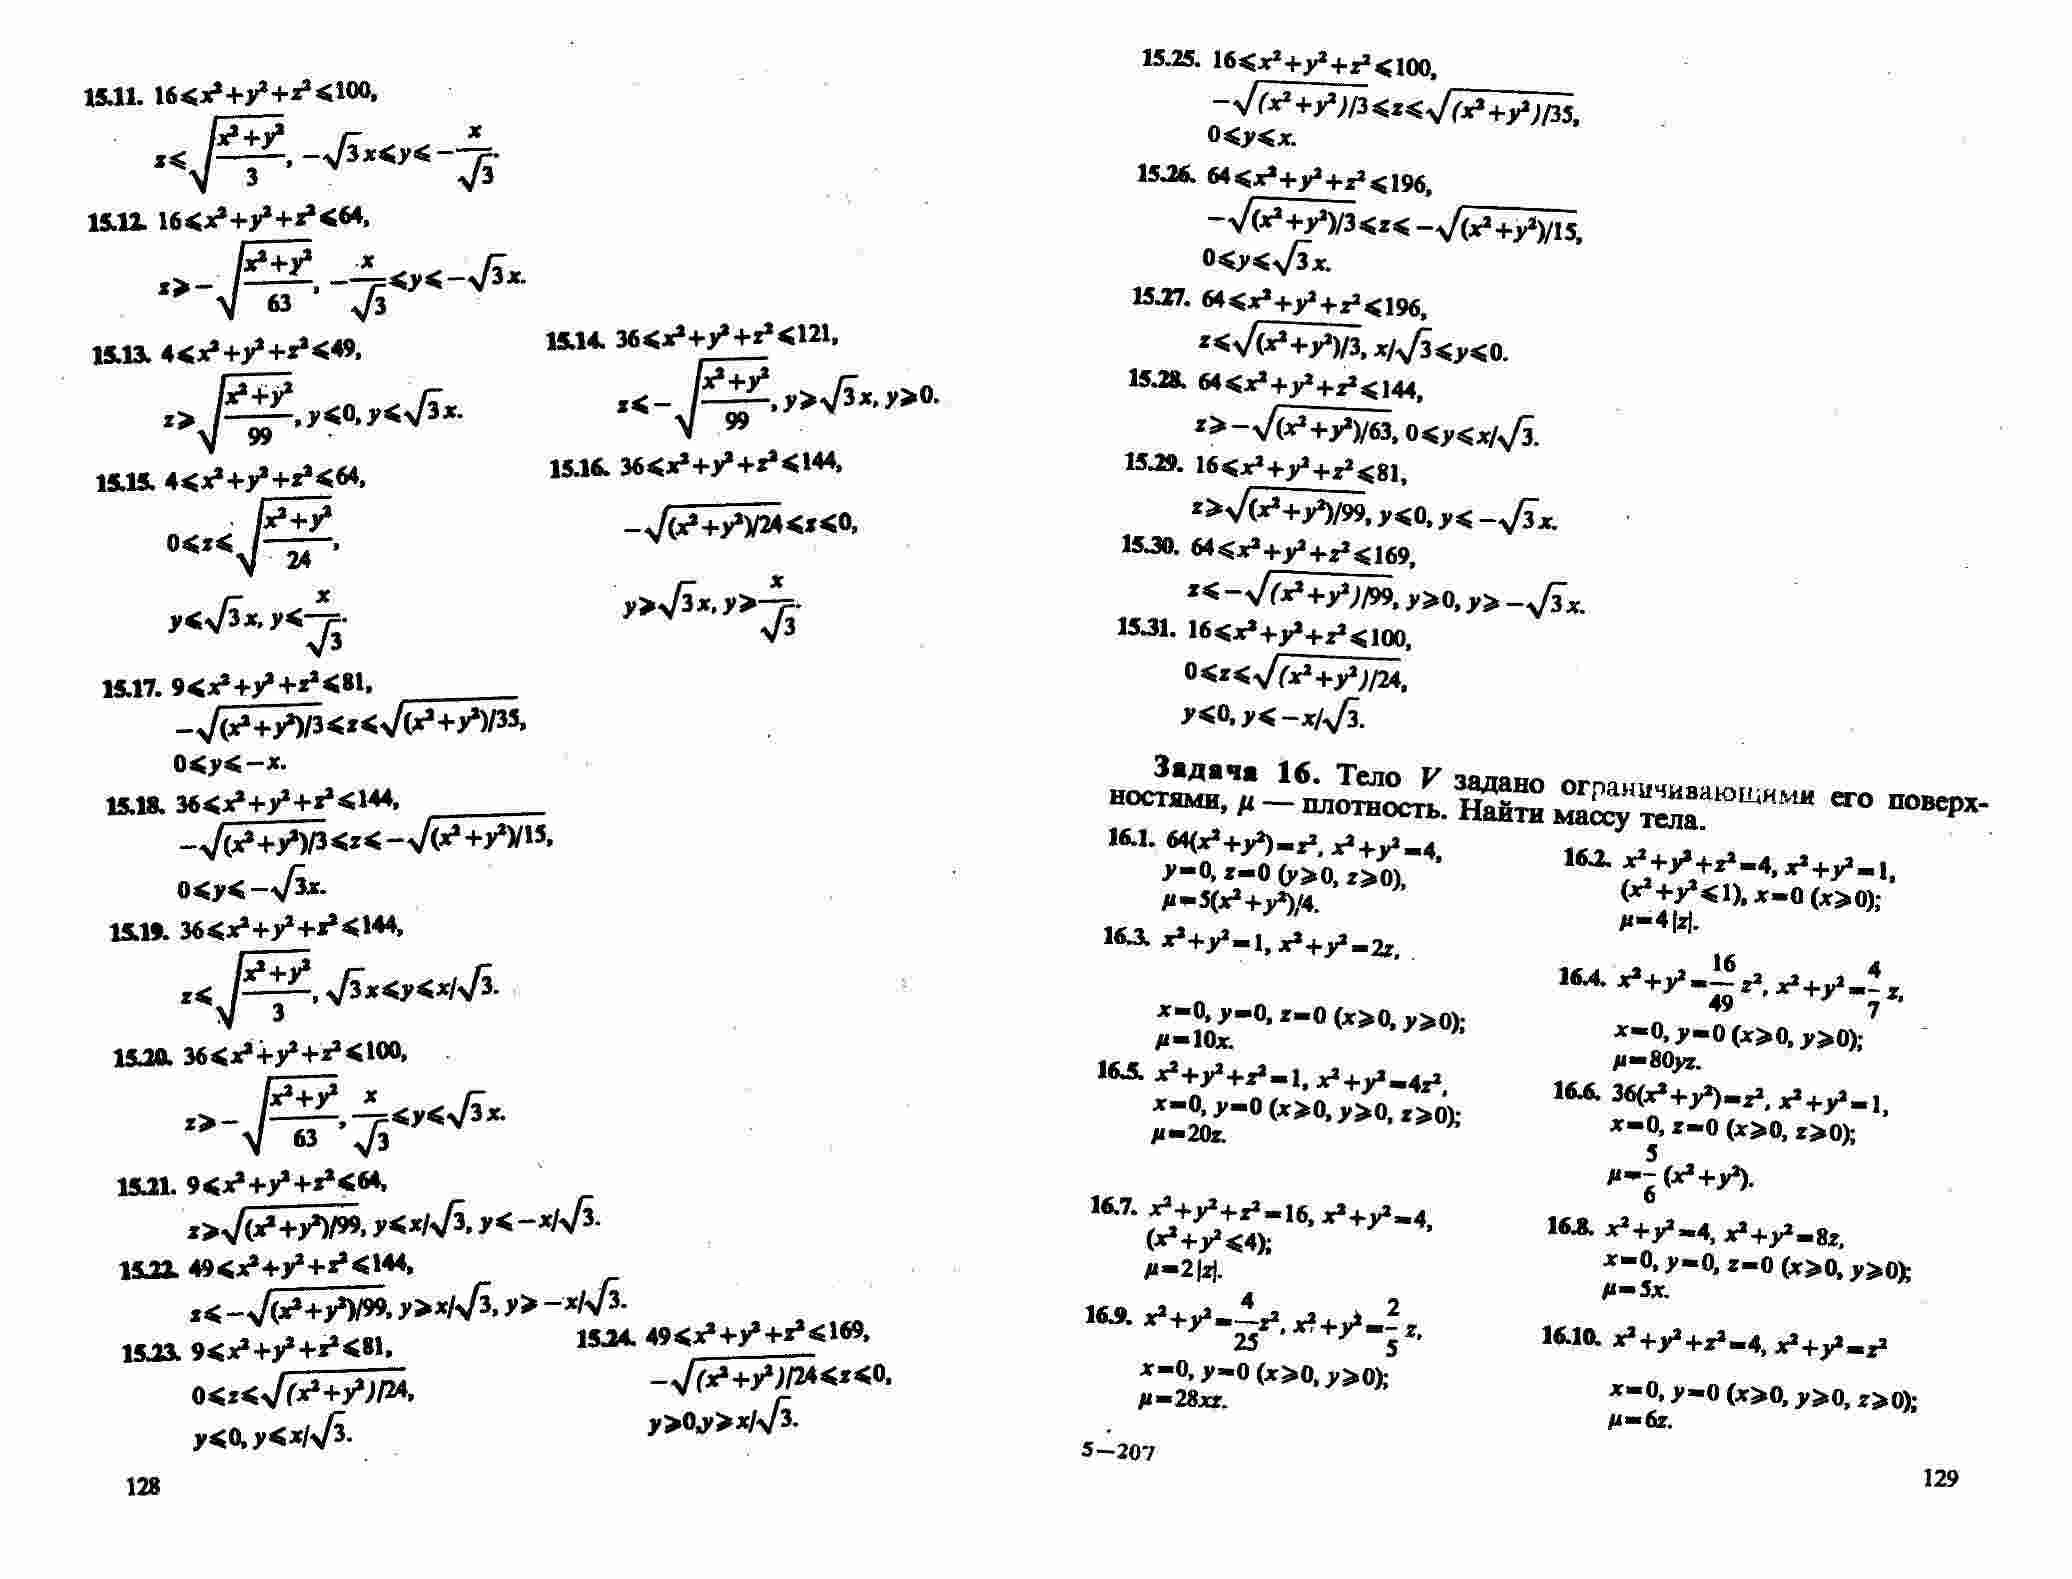 15.11. 16⩽x²+y²+z²⩽100,
z⩽√((x²+y²)/3), −√3x⩽y⩽−x/√3.
15.12. 16⩽x²+y²+z²⩽64,
z⩾−√((x²+y²)/63), −x/√3⩽y⩽−√3x.
15.13. 4⩽x²+y²+z²⩽49,
z⩾√((x²+y²)/99), y⩽0, y⩽√3x.
15.14. 36⩽x²+y²+z²⩽121,
z⩽−√((x²+y²)/99), y⩾√3x, y⩾0.
15.15. 4⩽x²+y²+z²⩽64,
0⩽z⩽√((x²+y²)/24),
y⩽√3x, y⩽x/√3.
15.16. 36⩽x²+y²+z²⩽144,
−√((x²+y²)/24)⩽z⩽0,
y⩾√3x, y⩾x/√3.
15.17. 9⩽x²+y²+z²⩽81,
−√((x²+y²)/3)⩽z⩽√((x²+y²)/35),
0⩽y⩽−x.
15.18. 36⩽x²+y²+z²⩽144,
−√((x²+y²)/3)⩽z⩽−√((x²+y²)/15),
0⩽y⩽−√3x.
15.19. 36⩽x²+y²+z²⩽144,
z⩽√((x²+y²)/3), √3x⩽y⩽x/√3.
15.20. 36⩽x²+y²+z²⩽100,
z⩾−√((x²+y²)/63), x/√3⩽y⩽√3x.
15.21. 9⩽x²+y²+z²⩽64,
z⩾√((x²+y²)/99), y⩽x/√3, y⩽−x/√3.
15.22. 49⩽x²+y²+z²⩽144,
z⩽−√((x²+y²)/99), y⩾x/√3, y⩾−x/√3.
15.23. 9⩽x²+y²+z²⩽81,
0⩽z⩽√((x²+y²)/24),
y⩽0, y⩽x/√3.
15.24. 49⩽x²+y²+z²⩽169,
−√((x²+y²)/24⩽z⩽0,
y⩾0,y⩾x/√3.
128
15.25. 16⩽x²+y²+z²⩽100,
−√((x²+y²)/3⩽z⩽√((x²+y²)/35,
0⩽y⩽x.
15.26. 64⩽x²+y²+z²⩽196,
−√((x²+y²)/3⩽z⩽−√((x²+y²)/15,
0⩽y⩽√3x.
15.27. 64⩽x²+y²+z²⩽196,
z⩽√((x²+y²)/3, x/√3⩽y⩽0.
15.28. 64⩽x²+y²+z²⩽144,
z⩾−√((x²+y²)/63, 0⩽y⩽x/√3.
15.29. 16⩽x²+y²+z²⩽81,
z⩾√((x²+y²)/99, y⩽0, y⩽−√3x.
15.30. 64⩽x²+y²+z²⩽169,
z⩽−√((x²+y²)/99, y⩾0, y⩾−√3x.
15.31. 16⩽x²+y²+z²⩽100,
0⩽z⩽√((x²+y²)/24,
y⩽0, y⩽−x/√3.
Задача 16. Тело V задано ограничивающими его поверх-
ностями, μ — плотность. Найти массу тела.
16.1. 64(x²+y²)=z², x²+y²=4,
y=0, z=0 (y⩾0, z⩾0),
μ=5(x²+y²)/4.
16.2. x²+y²+z²=4, x²+y²=1,
(x²+y²⩽1), x=0 (x⩾0);
μ=4|z|.
16.3. x²+y²=1, x²+y²=2z,
x=0, y=0, z=0 (x⩾0, y⩾0);
μ=10x.
16.4. x²+y²=16/49 z², x²+y²=4/7 z,
x=0, y=0 (x⩾0, y⩾0);
μ=80yz.
16.5. x²+y²+z²=1, x²+y²=4z²,
x=0, y=0 (x⩾0, y⩾0, z⩾0);
μ=20z.
16.6. 36(x²+y²)=z², x²+y²=1,
x=0, z=0 (x⩾0, z⩾0);
μ=5/6 (x²+y²).
16.7. x²+y²+z²=16, x²+y²=4,
(x²+y²⩽4);
μ=2|z|.
16.8. x²+y²=4, x²+y²=8z,
x=0, y=0, z=0 (x⩾0, y⩾0);
μ=5x.
16.9. x²+y²=4/25 z², x²+y²=2/5 z,
x=0, y=0 (x⩾0, y⩾0);
μ=28xz.
16.10. x²+y²+z²=4, x²+y²=z²
x=0, y=0 (x⩾0, y⩾0, z⩾0);
μ=6z.
5—207
129